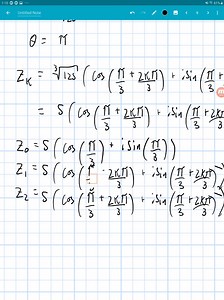 θ = π
Z_K = ∛125 (cos(π/3 + 2Kπ/3) + isin(π/3 +
= 5 (cos(π/3 + 2Kπ/3) + isin(π/3 + 2Kπ/3
Z₀ = 5 (cos(π/3) + isin(π/3))
Z₁ = 5 (cos(π/3 + 2Kπ/3) + isin(π/3 + 2Kπ/3)
Z₂ = 5 (cos(π/3 + 2Kπ/3) + isin(π/3 + 2Kπ/3)